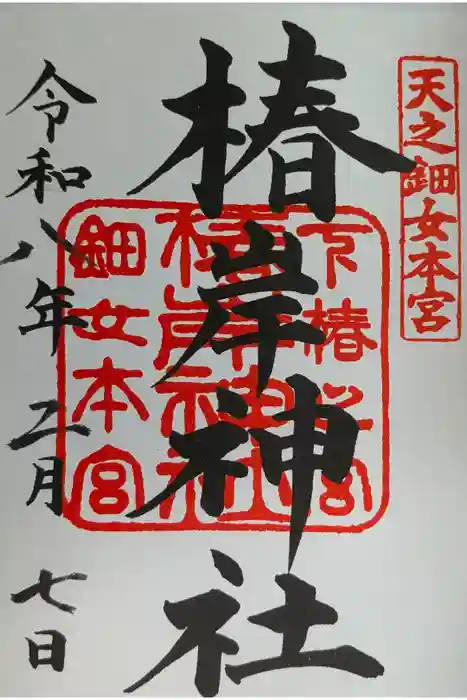 天之鈿女本宮
椿岸神社
下椿之宮
椿岸神社
鈿女本宮
令和八年 二月 七日